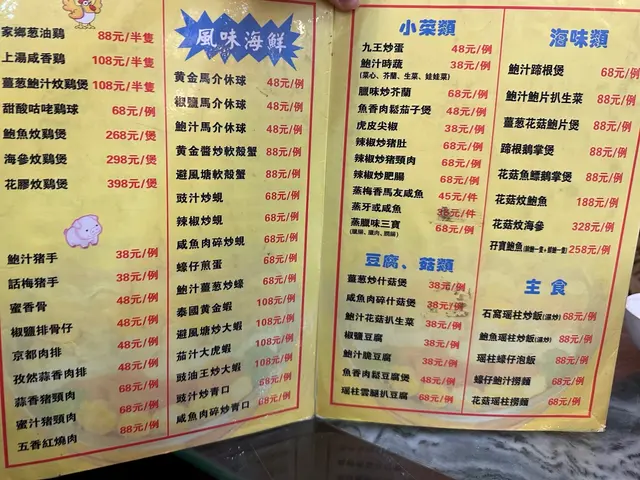 家鄉葱油鷄 88元/半隻
上湯咸香鷄 108元/半隻
薑葱鮑汁炆鷄煲 108元/半隻
甜酸咕咾鷄球 68元/例
鮑魚炆鷄煲 268元/煲
海參炆鷄煲 298元/煲
花膠炆鷄煲 398元/煲
鮑汁猪手 38元/例
話梅猪手 38元/例
蜜香骨 48元/例
椒鹽排骨仔 48元/例
京都肉排 48元/例
孜然蒜香肉排 48元/例
蒜香猪頸肉 68元/例
蜜汁猪頸肉 68元/例
五香紅燒肉 88元/例
風味海鮮
黃金馬介休球 48元/例
椒鹽馬介休球 48元/例
鮑汁馬介休球 48元/例
黃金醬炒軟殼蟹 88元/例
避風塘軟殼蟹 88元/例
豉汁炒蜆 68元/例
辣椒炒蜆 68元/例
咸魚肉碎炒蜆 68元/例
蠔仔煎蛋 68元/例
鮑汁薑葱炒蠔 68元/例
泰國黃金蝦 108元/例
避風塘炒大蝦 108元/例
茄汁大虎蝦 108元/例
豉油王炒大蝦 108元/例
豉汁炒青口 68元/例
咸魚肉碎炒青口 68元/例
小菜類
九王炒蛋 48元/例
鮑汁時蔬 38元/例
(菜心、芥蘭、生菜、娃娃菜)
臘味炒芥蘭 68元/例
魚香肉鬆茄子煲 48元/例
虎皮尖椒 38元/例
辣椒炒猪肚 68元/例
辣椒炒猪頸肉 68元/例
辣椒炒肥腸 68元/例
蒸梅香馬友咸魚 45元/件
蒸牙或咸魚 35元/件
蒸臘味三寶 68元/例
豆腐、菇類
薑葱炒什菇煲 38元/例
咸魚肉碎什菇煲 38元/例
鮑汁花菇扒生菜 38元/例
椒鹽豆腐 38元/例
鮑汁脆豆腐 38元/例
魚香肉鬆豆腐煲 48元/例
瑤柱雲腿扒豆腐 68元/例
海味類
鮑汁蹄根煲 68元/例
鮑汁鮑片扒生菜 88元/例
薑葱花菇鮑片煲 88元/例
蹄根鵝掌煲 88元/例
花菇魚鰾鵝掌煲 88元/例
花菇炆鮑魚 188元/例
花菇炆海參 328元/例
孖寶鮑魚 258元/例
主食
石窩瑤柱炒飯(濕炒) 68元/例
鮑魚瑤柱炒飯(濕炒) 88元/例
瑤柱蠔仔泡飯 88元/例
蠔仔鮑汁撈麵 68元/例
花菇瑤柱撈麵 68元/例